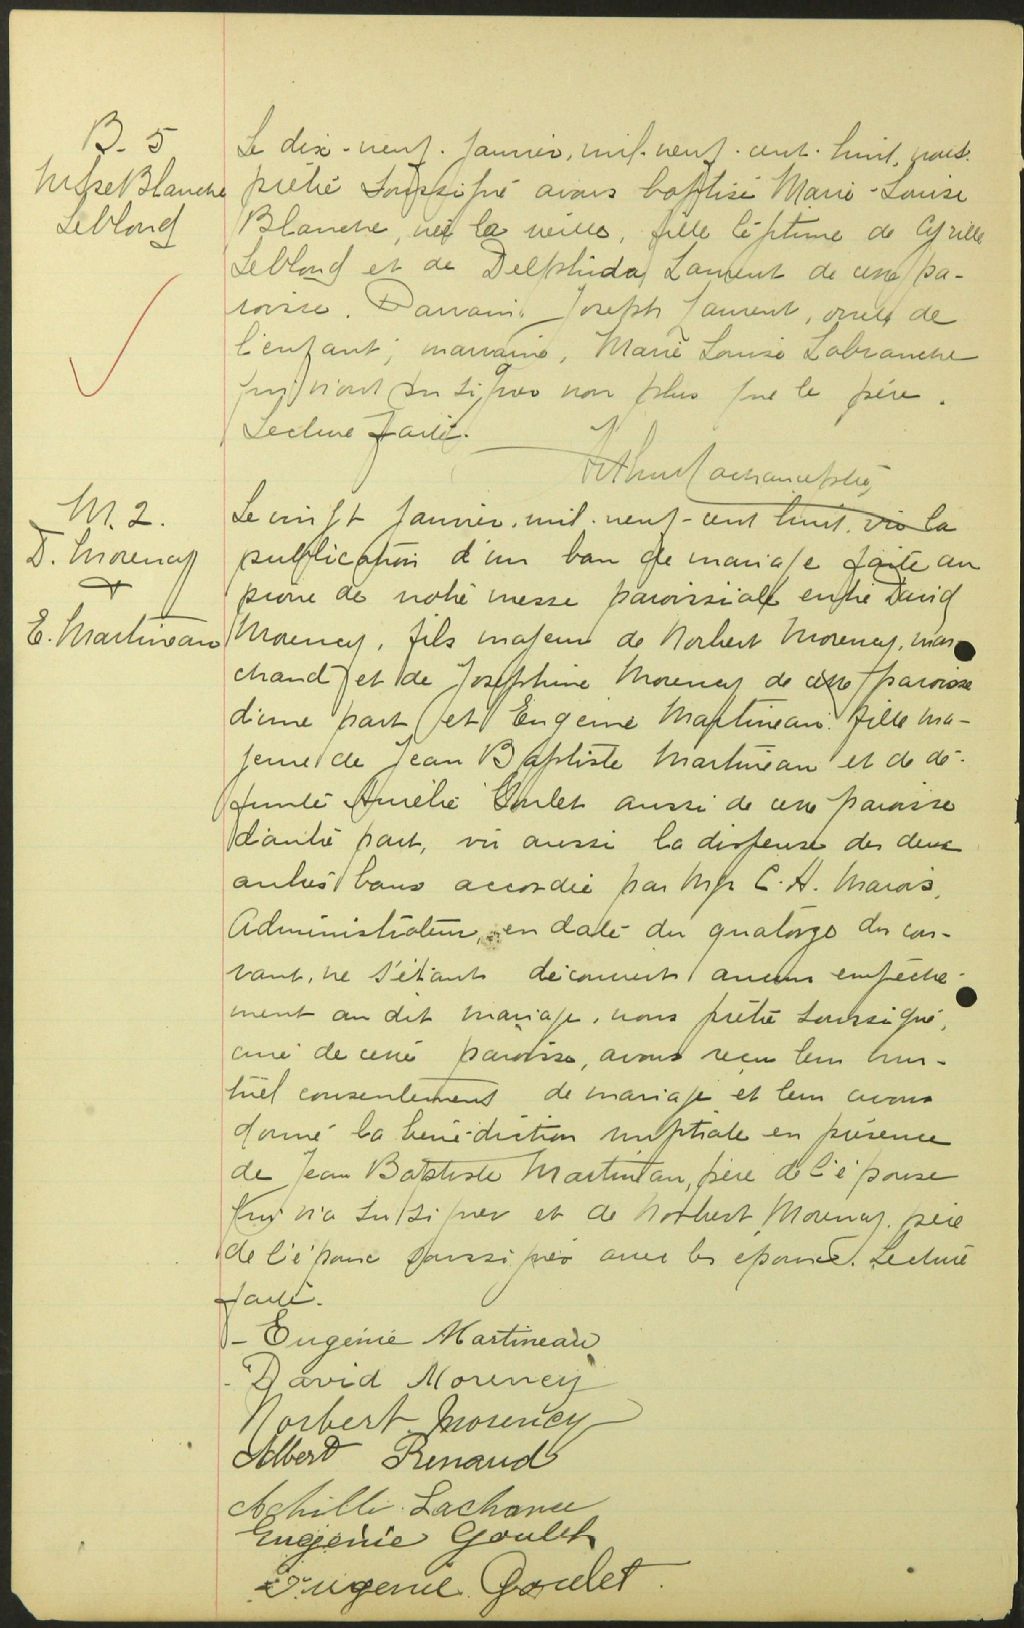 B. 5
Mse Blanche
Leblond
Le dix-neuf Janvier, mil-neuf-cent-huit, nous
prêtre soussigné avons baptisé Marie-Louise
Blanche, née la veille, fille légitime de Cyrille
Leblond et de Delphida Laurent de cette pa-
roisse. Parrain Joseph Laurent, oncle de
l'enfant; marraine, Marie Louise Labranche
qui n'ont su signer non plus que le père.
Lecture faite.
Arthur Lachance ptre,
M. 2.
D. Morency
+
E. Martineau
Le vingt Janvier, mil-neuf-cent huit, vu la
publication d'un ban de mariage faite au
prône de notre messe paroissiale entre David
Morency, fils majeur de Norbert Morency, mar-
chand et de Joséphine Morency de cette paroisse
d'une part et Eugénie Martineau fille ma-
jeure de Jean Baptiste Martineau et de dé-
funte Aurélie Goulet aussi de cette paroisse
d'autre part, vu aussi la dispense des deux
autres bans accordée par Mgr C. A. Marois,
Administrateur, en date du quatorze du cou-
rant, ne s'étant découvert aucun empêche-
ment au dit mariage, nous prêtre soussigné,
curé de cette paroisse, avons reçu leur mu-
tuel consentement de mariage et leur avons
donné la bénédiction nuptiale en présence
de Jean Baptiste Martineau, père de l'épouse
qui n'a su signer et de Norbert Morency, père
de l'époux soussigné avec les époux. Lecture
faite.
- Eugénie Martineau
- David Morency
Norbert Morency
Albert Renaud
Achille Lachance
Eugénie Goulet
Eugénie Goulet.